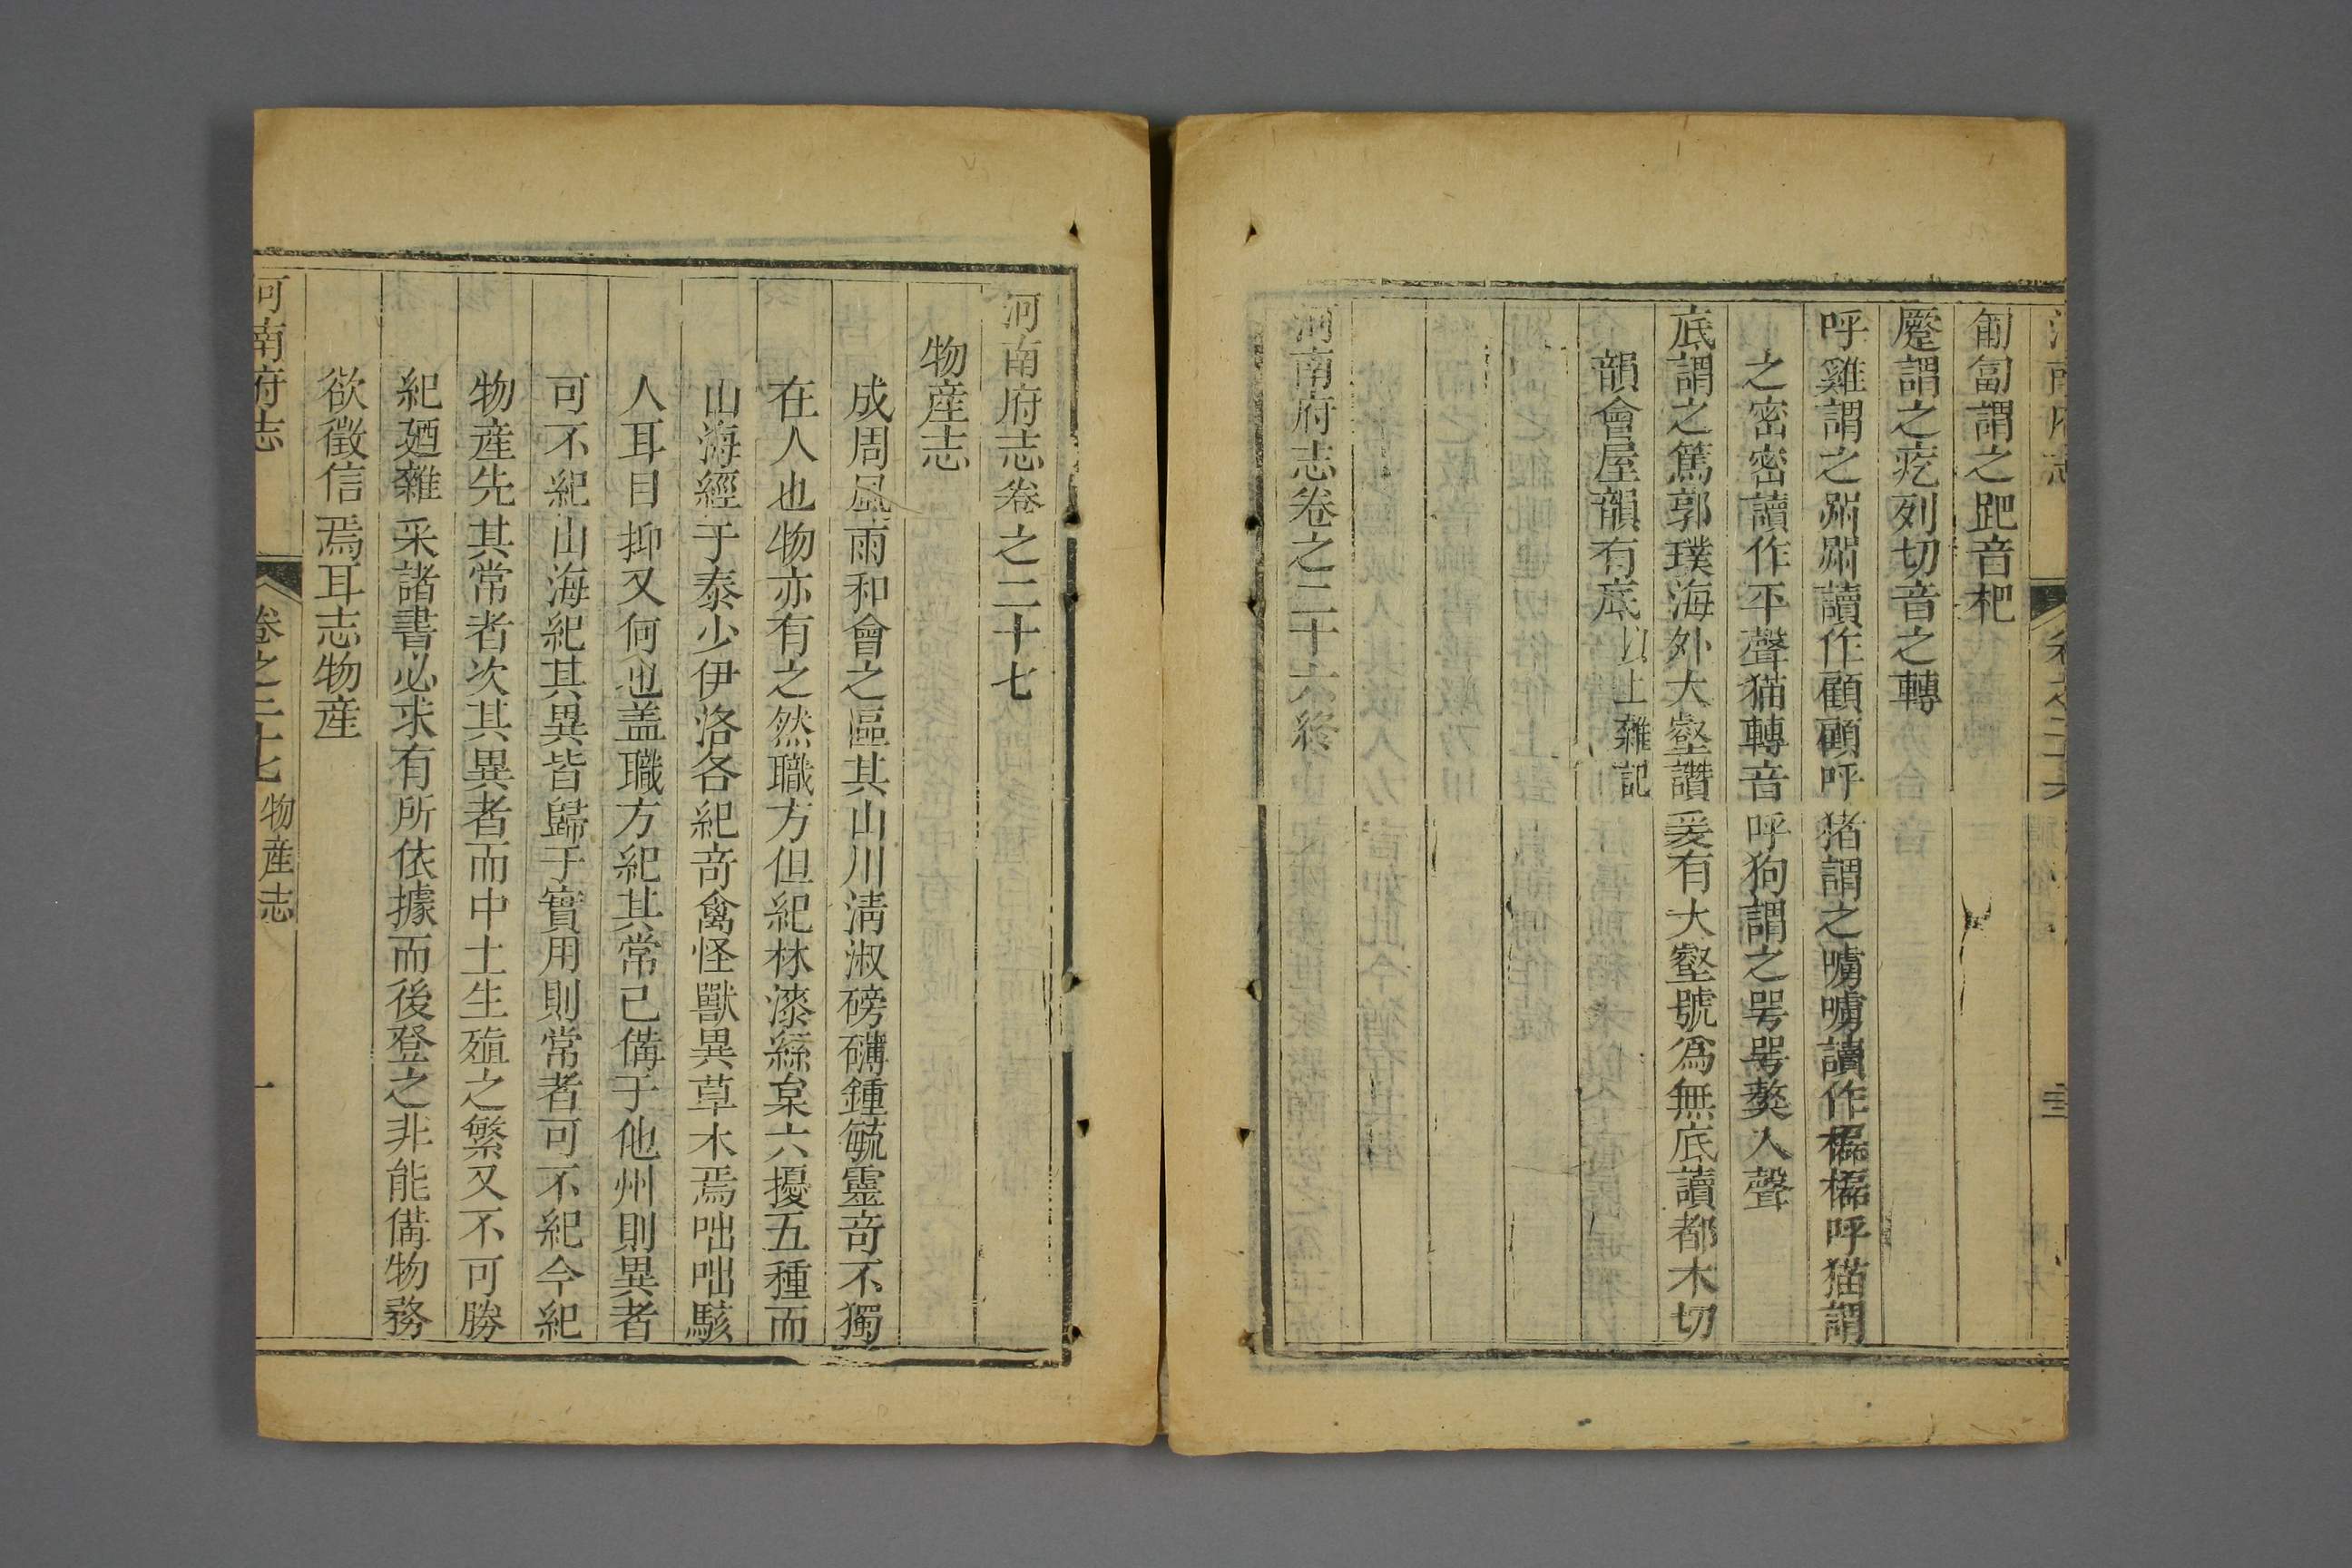 匍匐謂之跁音杷
蹷謂之疙列切音之轉
呼雞謂之喌喌讀作顧顧呼猪謂之㗅㗅讀作欙欙呼猫謂
之密密讀作平聲猫轉音呼狗謂之㗊㗊獒入聲
底謂之篤郭璞海外大壑讚爰有大壑號爲無底讀都木切
韻會屋韻有底以上雜記
河南府志卷之二十六終
河南府志卷之二十七
物産志
成周風雨和會之區其山川淸淑磅礴鍾毓靈竒不獨
在人也物亦有之然職方但紀林漆絲枲六擾五種而
山海經于泰少伊洛各紀竒禽怪獸異草木焉咄咄駭
人耳目抑又何也盖職方紀其常已備于他州則異者
可不紀山海紀其異皆歸于實用則常者可不紀今紀
物産先其常者次其異者而中土生殖之繁又不可勝
紀廼雜采諸書必求有所依據而後登之非能備物務
欲徵信焉耳志物産
河南府志 卷之二十七 物産志 一